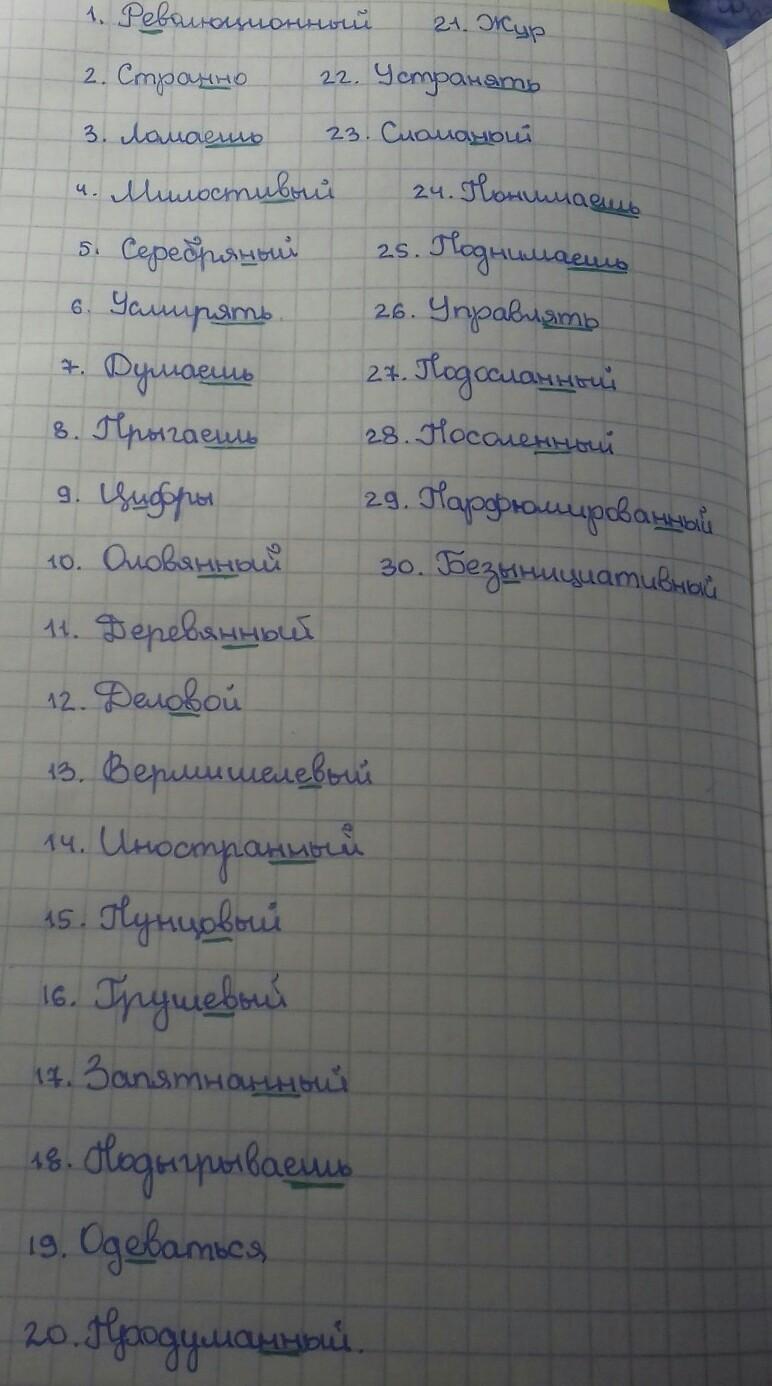 1. Революционный
2. Странно
3. Ломаешь
4. Милостивый
5. Серебряный
6. Усмирять
7. Думаешь
8. Прыгаешь
9. Цифры
10. Оловянный
11. Деревянный
12. Деловой
13. Вермишелевый
14. Иностранный
15. Пунцовый
16. Грушевый
17. Запятнанный
18. Подыгрываешь
19. Одеваться
20. Продуманный.
21. Жур
22. Устранять
23. Сломаный
24. Понимаешь
25. Поднимаешь
26. Управлять
27. Подосланный
28. Посоленный
29. Парфюмированный
30. Безынициативный